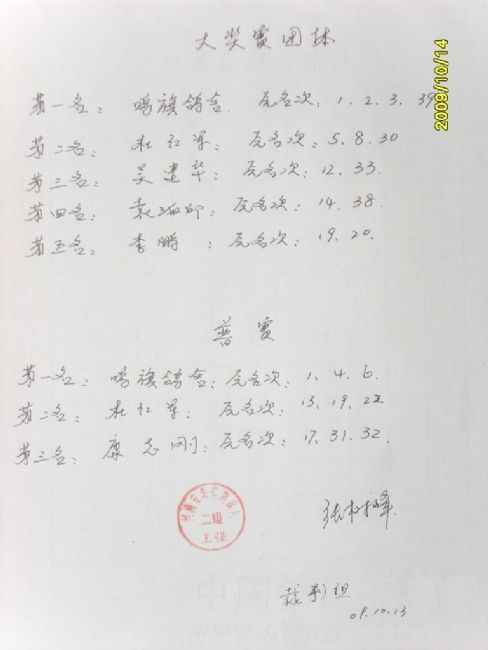 大奖赛团体
2009/10/14
第一名: 鸣旗鸽舍. 原名次: 1.2.3.39
第二名: 杜红军: 原名次: 5.8.30
第三名: 吴建华: 原名次: 12.33.
第四名: 原名次: 14.38.
第五名: 李鹏: 原名次: 19.20.
普赛
第一名: 鸣旗鸽舍: 原名次: 1.4.6.
第二名: 杜红军: 原名次: 13.19.22
第三名: 康志刚: 原名次: 17.31.32.
二级
裁判组
09.10.13